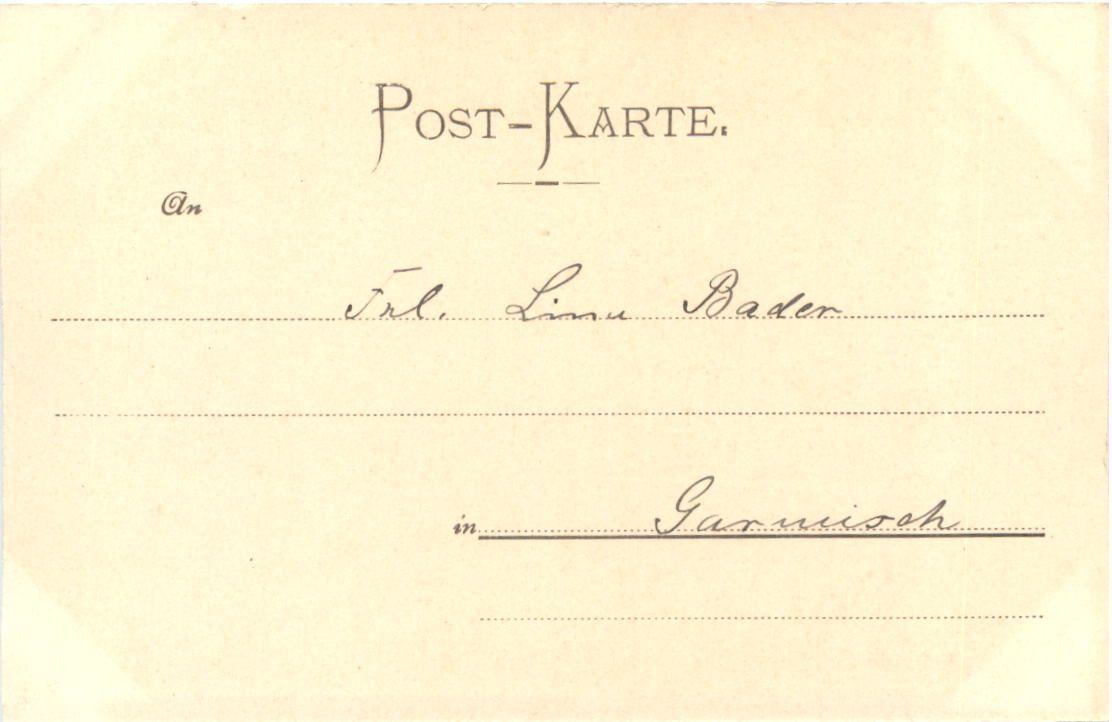 POST-KARTE.
An
Frl. Lina Bader
in Garmisch